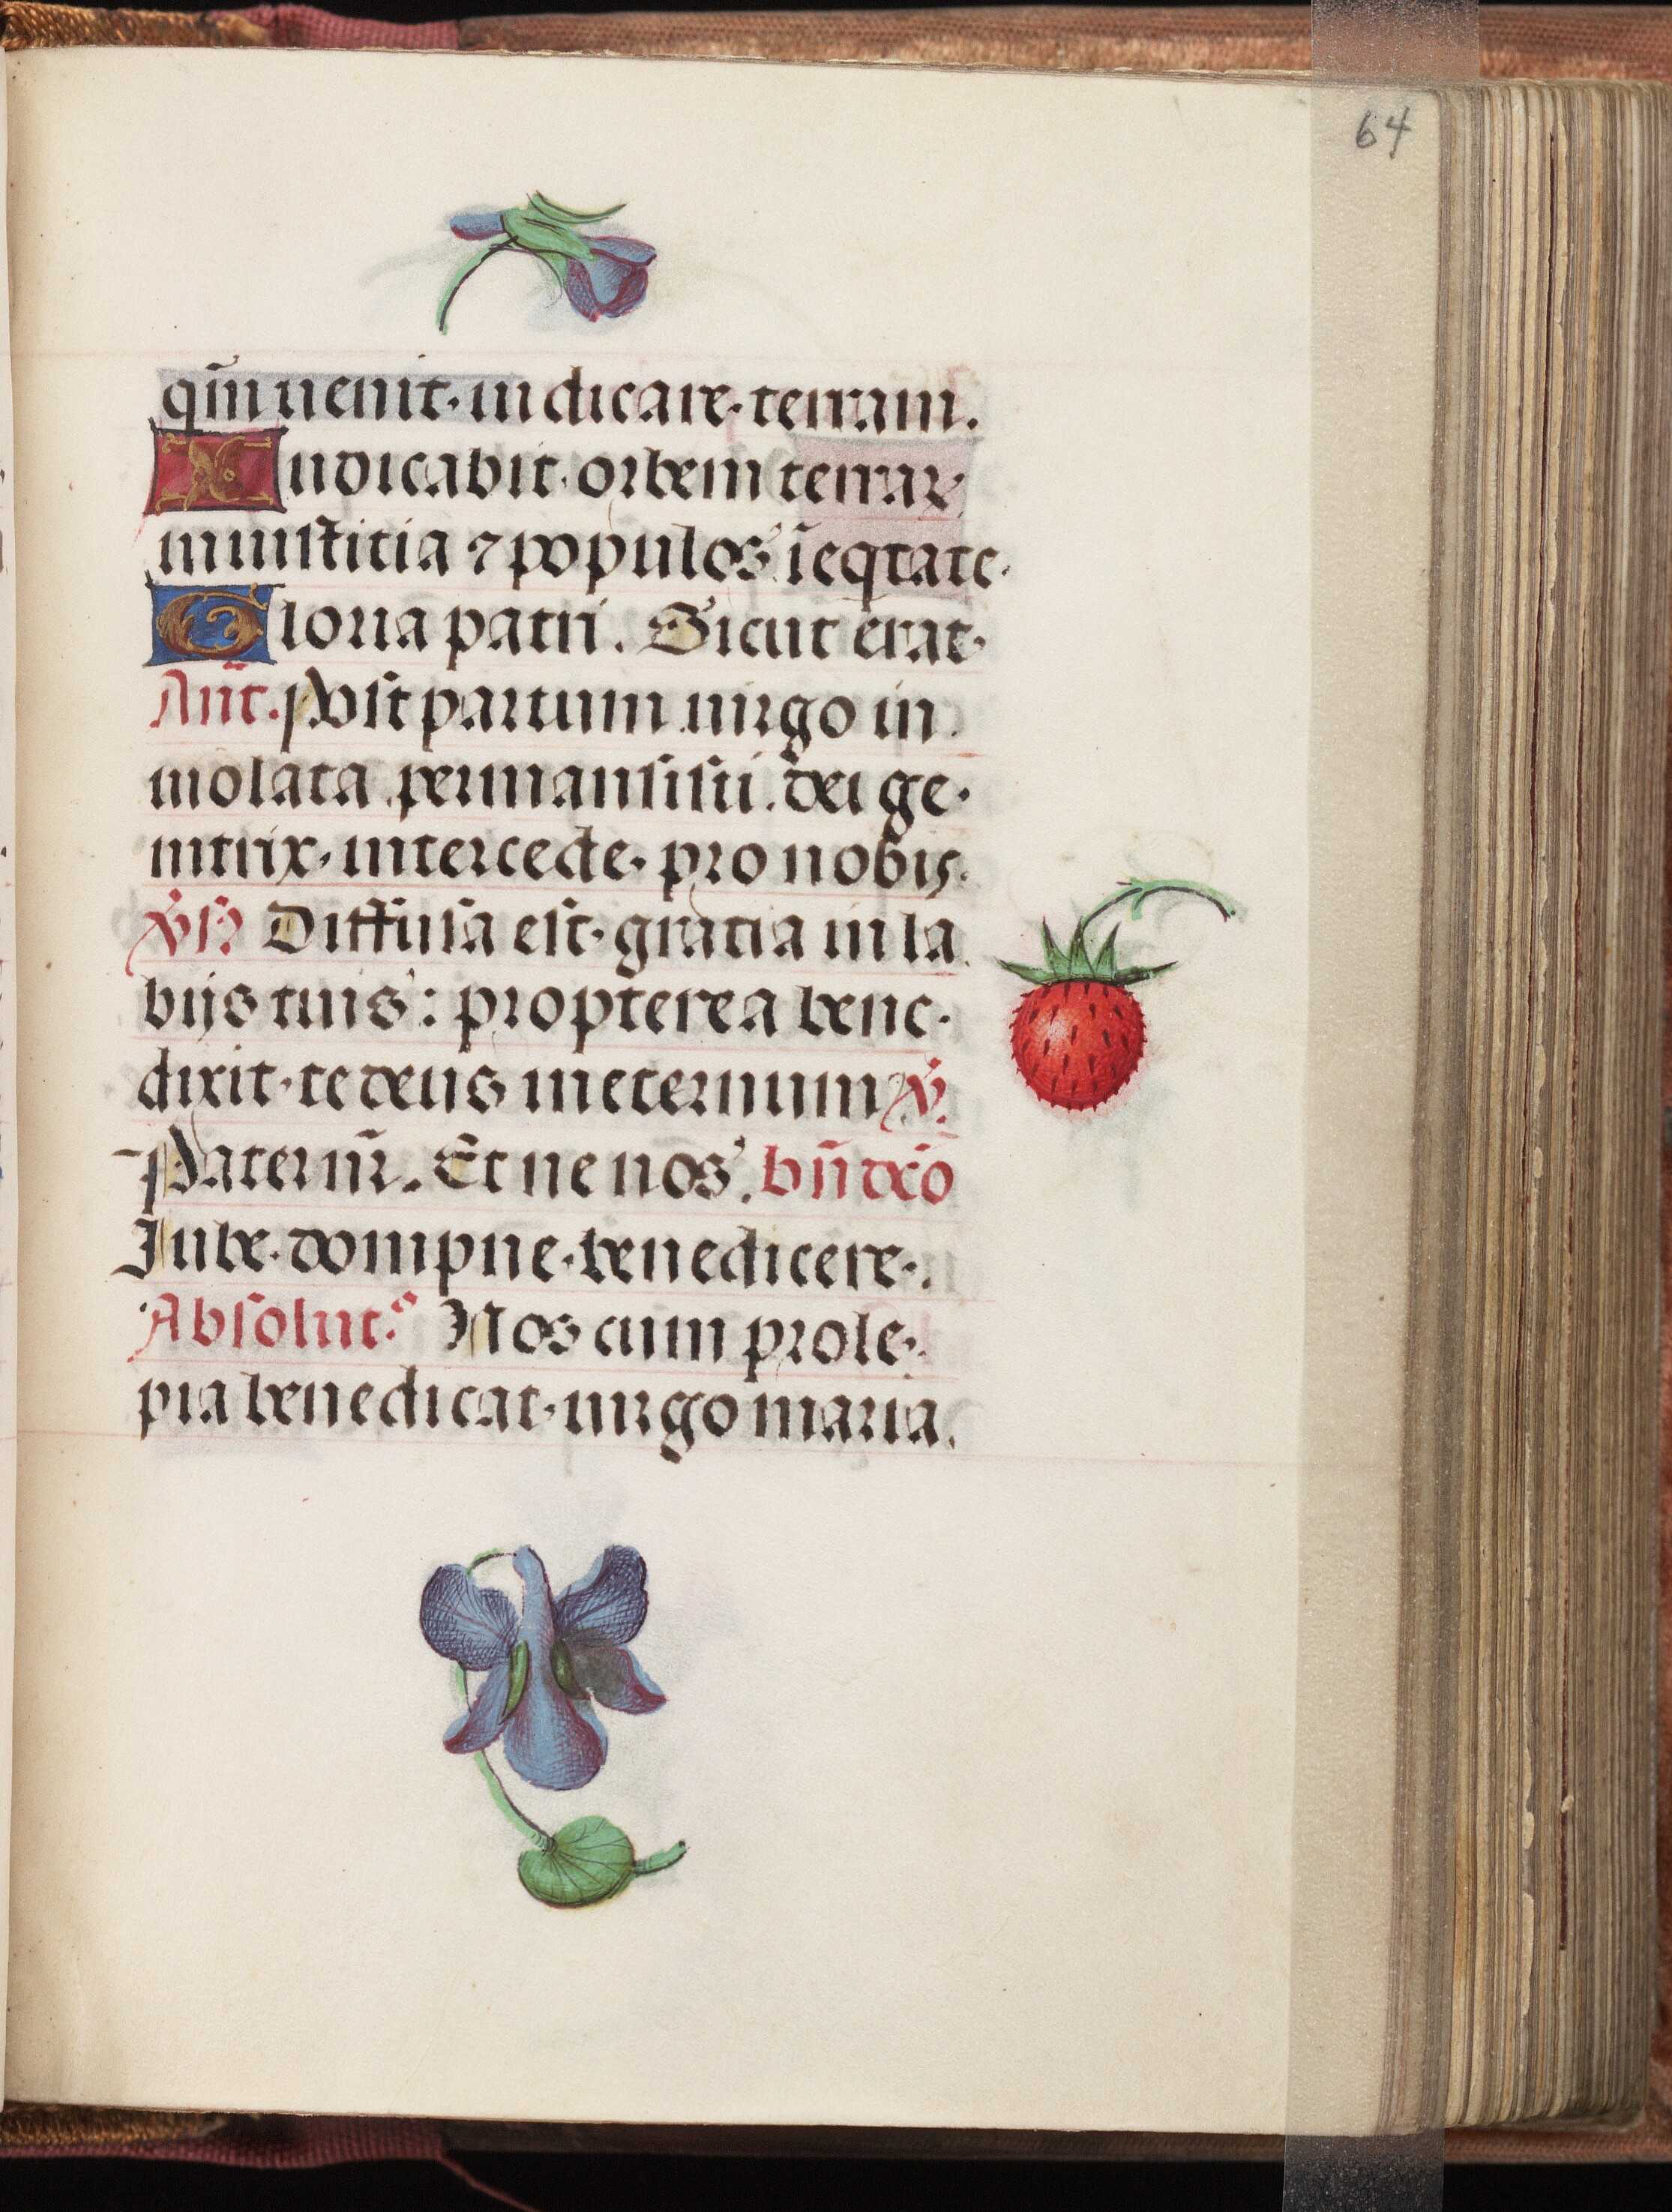 64
qm̄ uenit · iudicare · terram.
Iudicabit · orbem terrar
in iusticia ⁊ populos ī eqtate ·
Gloria patri. Sicut erat ·
Ant̄. Post partum uirgo in
uiolata permansisti. dei ge ·
nitrix · intercede · pro nobis.
v̇s Diffusa est · gratia in la
biis tuis : propterea bene ·
dixit · te deus in eternum v̇.
Pater nr̄. Et ne nos. bn̄dcō
Iube · dompne · benedicere ·.
Absolut.º Nos cum prole ·
pia benedicat · uirgo maria.